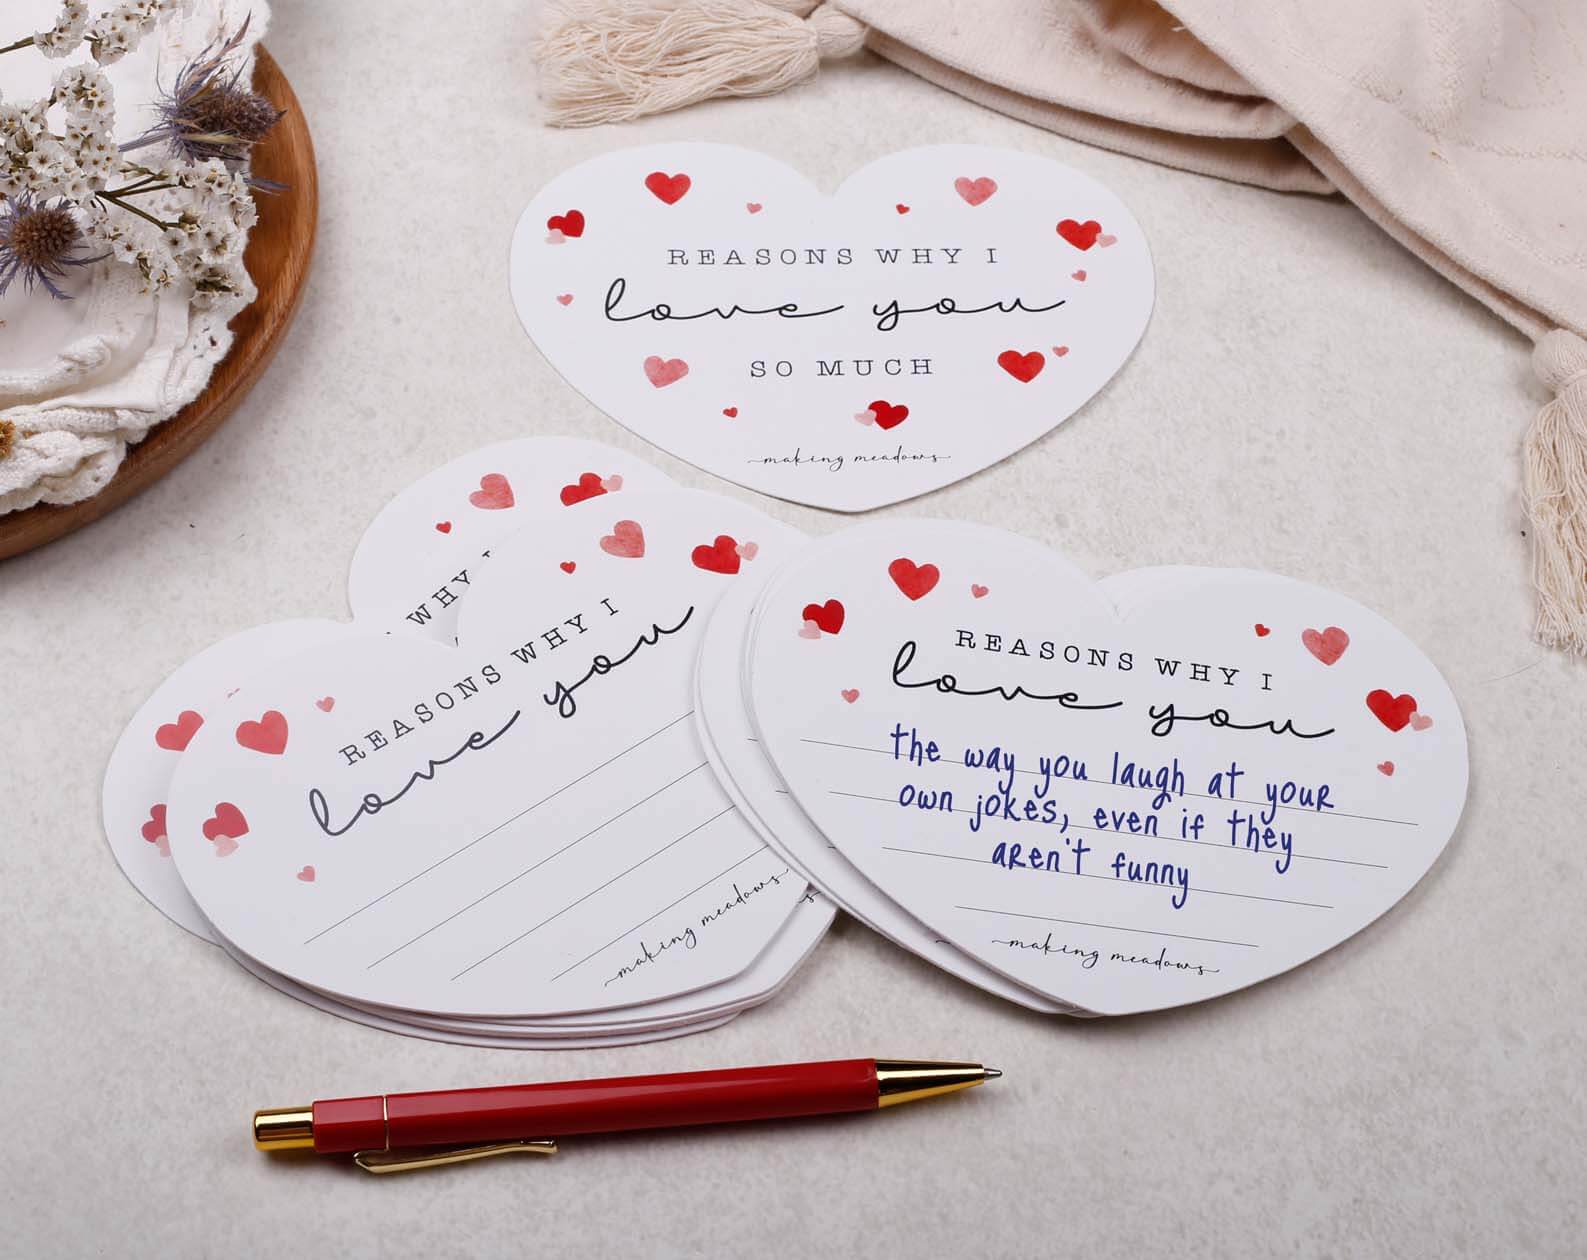 REASONS WHY I
love you
SO MUCH
making meadows
WHY
REASONS WHY I
love you
making meadows
REASONS WHY I
love you
the way you laugh at your
own jokes, even if they
aren't funny
making meadows